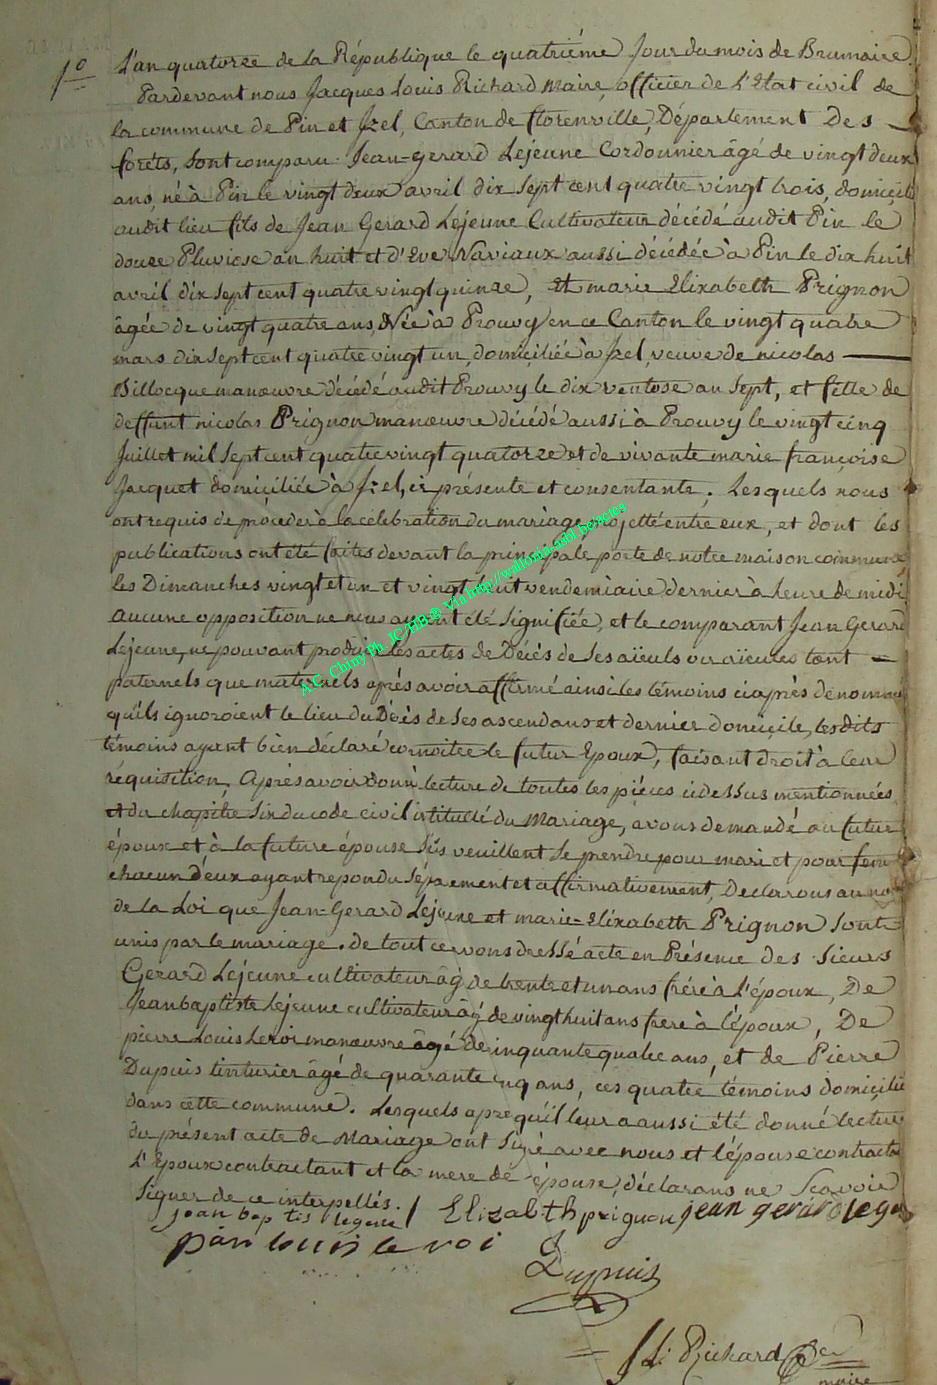 1º
L'an quatorze de la République le quatriéme Jour du mois de Brumaire
Pardevant nous Jacques Louis Richard Maire, officier de L'Etat civil de
la commune de Pin et Izel, Canton de florenville, Département Des
forêts, Sont comparu Jean-Gerard Lejeune Cordonnier âgé de vingt deux
ans, né à Pin le vingt deux avril dix sept cent quatre vingt trois, domicilié
audit lieu fils de Jean Gerard Lejeune Cultivateur décédé audit Pin le
douze Pluviose an huit et d'Eve Naviaux aussi décédée à Pin le dix huit
avril dix sept cent quatre vingt quinze, Et marie Elisabeth Prignon
âgée de vingt quatre ans, Née à Prouvy en ce Canton le vingt quatre
mars dix sept cent quatre vingt un, domiciliée à Izel, veuve de nicolas
Billocque manœuvre décédé audit Prouvy le dix ventose an Sept, et fille de
deffunt nicolas Prignon manœuvre décédé aussi à Prouvy le vingt cinq
Juillet mil Sept cent quatre vingt quatorze et de vivante marie françoise
Jacquet domiciliée à Izel, ci présente et consentante. Lesquels nous
ont requis de procéder à la célébration du mariage projetté entre eux, et dont les
publications ont été faites devant la principale porte de notre maison commune
les Dimanches vingt et un et vingt huit vendemiaire dernier à heure de midi
aucune opposition ne nous ayant été Signifiée, et le comparant Jean Gerard
Lejeune, ne pouvant produire les actes de Décès de Ses aïeuls tant
paternels que maternels après avoir affirmé ainsi les témoins ciaprès dénommés
qu'ils ignoroient le lieu du Décès de Ses ascendans et dernier domicile, lesdits
témoins ayant bien déclaré connoitre le futur Epoux, faisant droit à leur
réquisition, Après avoir donné lecture de toutes les pièces cidessus mentionnées
et du chapitre Six du code civil intitullé du Mariage, avons demandé au futur
époux et à la future épouse S'ils veuillent Se prendre pour mari et pour fem
chacun d'eux ayant repondu Séparement et affirmativement, Declarons au nom
de la Loi que Jean-Gerard Lejeune et marie-Elisabeth Prignon Sont
unis par le mariage. de tout ce avons dressé acte en Présence des Sieurs
Gerard Lejeune cultivateur âgé de trente et un ans frère à L'époux, De
Jean baptiste Lejeune cultivateur âgé de vingt huit ans frere à l'époux, De
pierre Louis Leroi manœuvre âgé de cinquante quatre ans, et de Pierre
Dupuis tinturier âgé de quarante cinq ans, ces quatre témoins domicilié
dans cette commune. Lesquels apre qu'il leur a aussi été donné lecture
du présent acte de Mariage ont Signé avec nous et l'épouse contracta
L'Epoux contractant et la mere de épouse, déclarans ne Scavoir
Signer de ce interpellés.
jean bap tis legene Elizabeth prignon jean gerard lege
piar louis le roi
Dupuis
J L: Richard
maire
A.C. Chiny Ph. JC/HB® via http://wallonia.asbl.be/actes